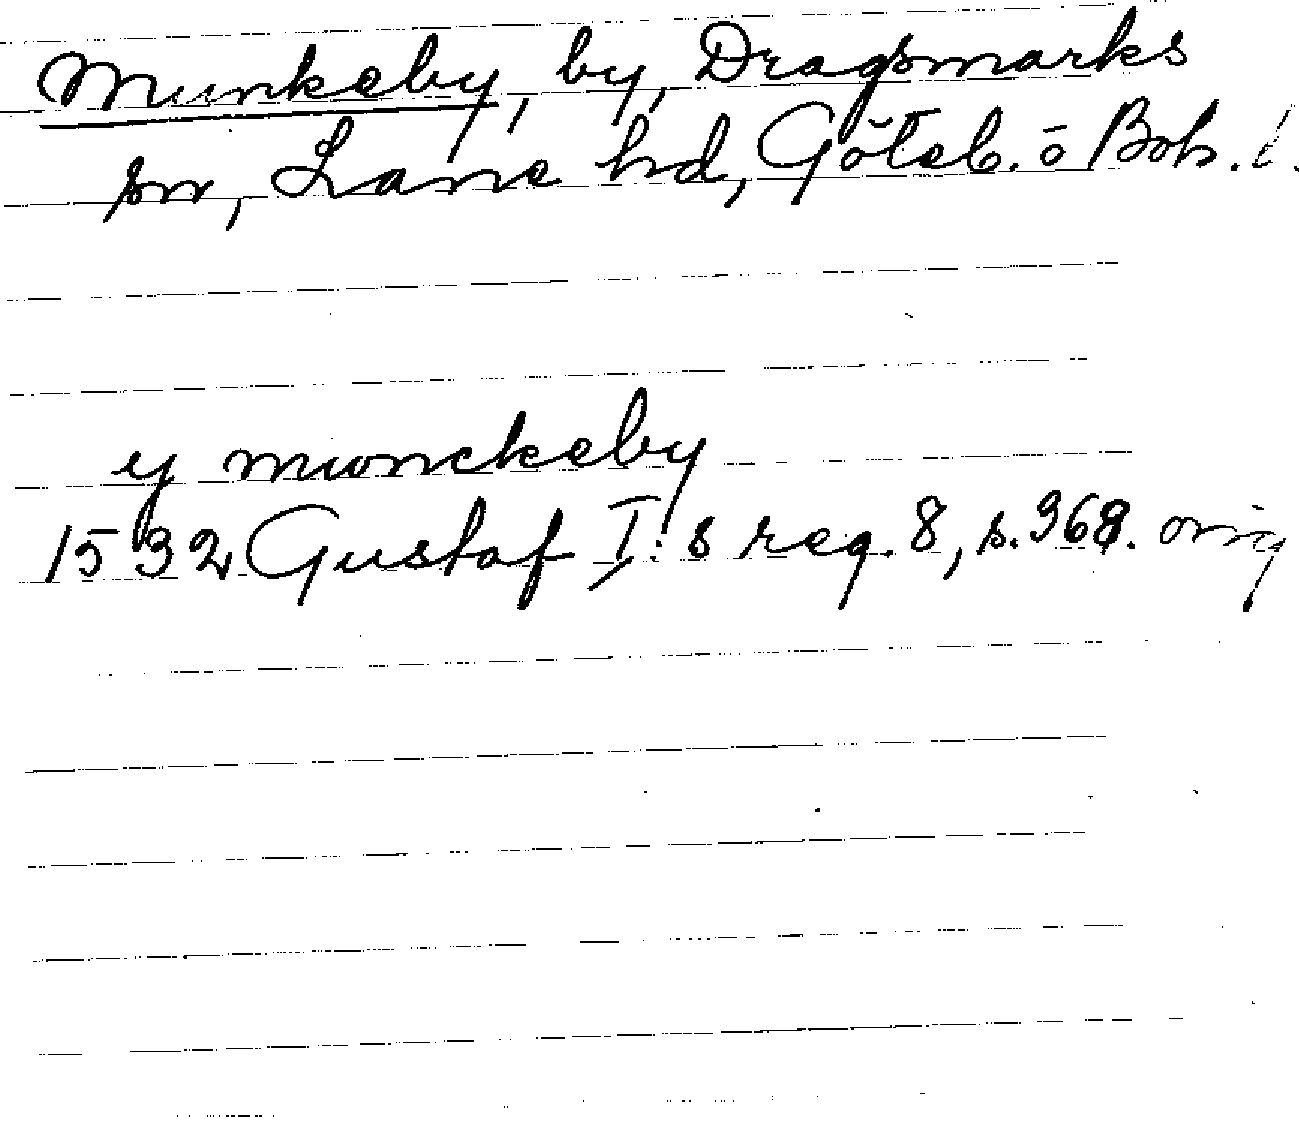 Munkeby, by, Dragsmarks
sn, Lane hd, Göteb. o Boh. l.
y munckeby
1532 Gustaf I:s reg. 8, s. 368. orig